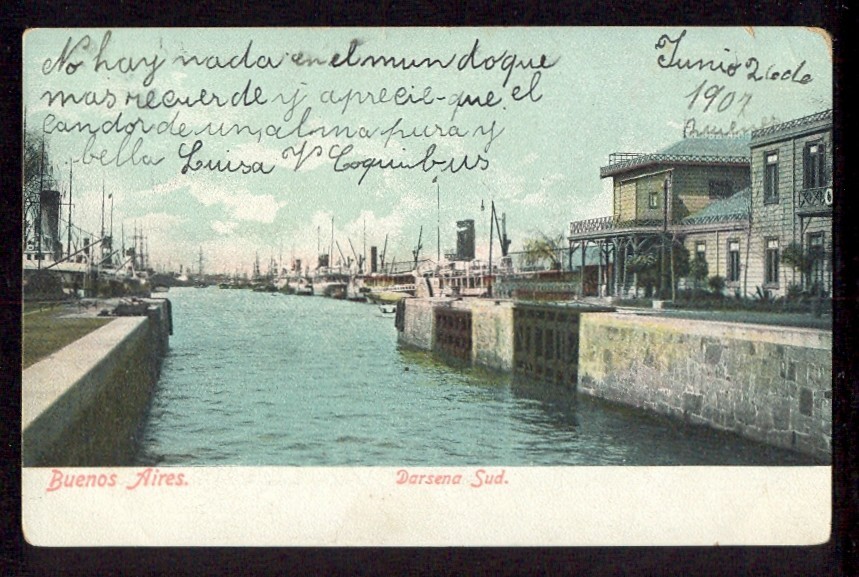 No hay nada en el mundo que
mas recuerde y aprecie-que el
candor de un alma pura y
bella Luisa V Coquibus
Junio 26 de
1907
Buenos Aires.
Darsena Sud.